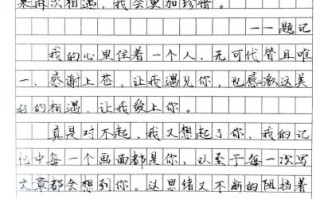 果再次相遇，我会更加珍惜。
——题记
我的心里住着一个人，无可代替且唯
一。感谢上苍，让我遇见你，也感激这美
好的相遇，让我爱上你。
真是对不起，我又想起了你，我的记
忆中每一个画面都是你，以至于每一次写
文章都会想到你。这思绪又不断的阻挡着